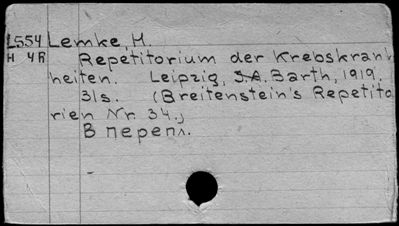 L554 Lemke, H.
H 4R Repetitorium der Krebskrank
heiten. Leipzig, J.A. Barth, 1919.
31s. (Breitenstein's Repetito
rien Nr. 34.)
В перепл.